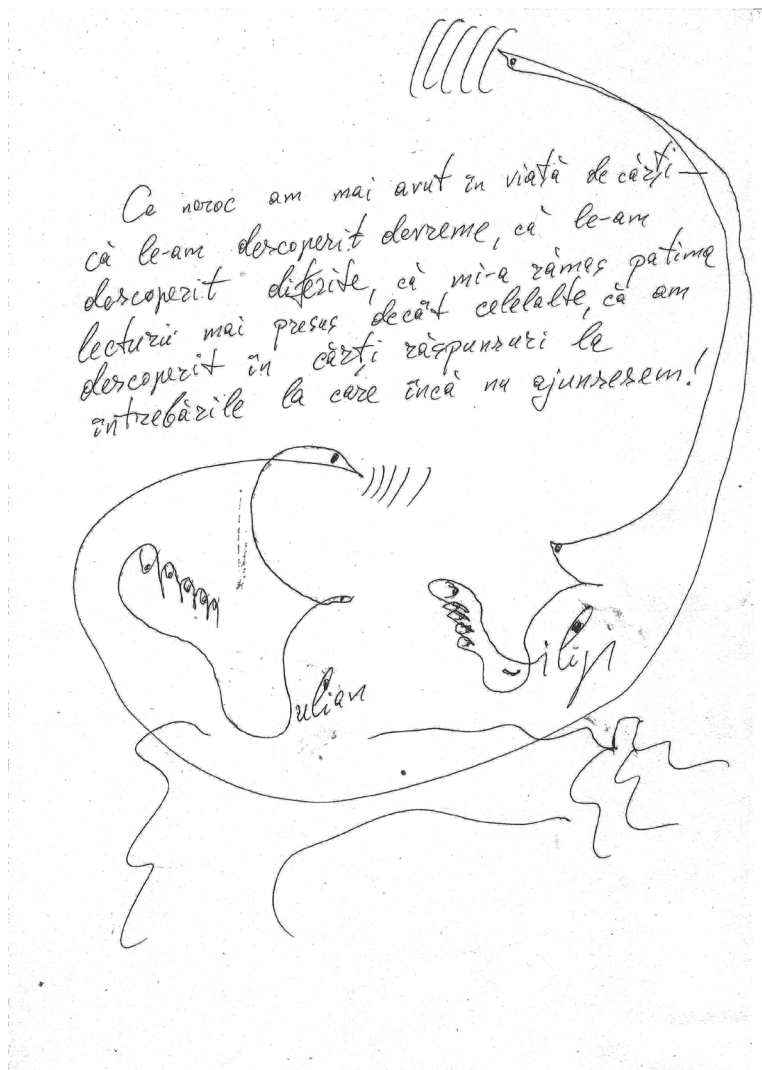 Ce noroc am mai avut în viață de cărți —
că le-am descoperit devreme, că le-am
descoperit diferite, că mi-a rămas patima
lecturii mai presus decât celelalte, că am
descoperit în cărți răspunsuri la
întrebările la care încă nu ajunsesem!
Iulian
Filip